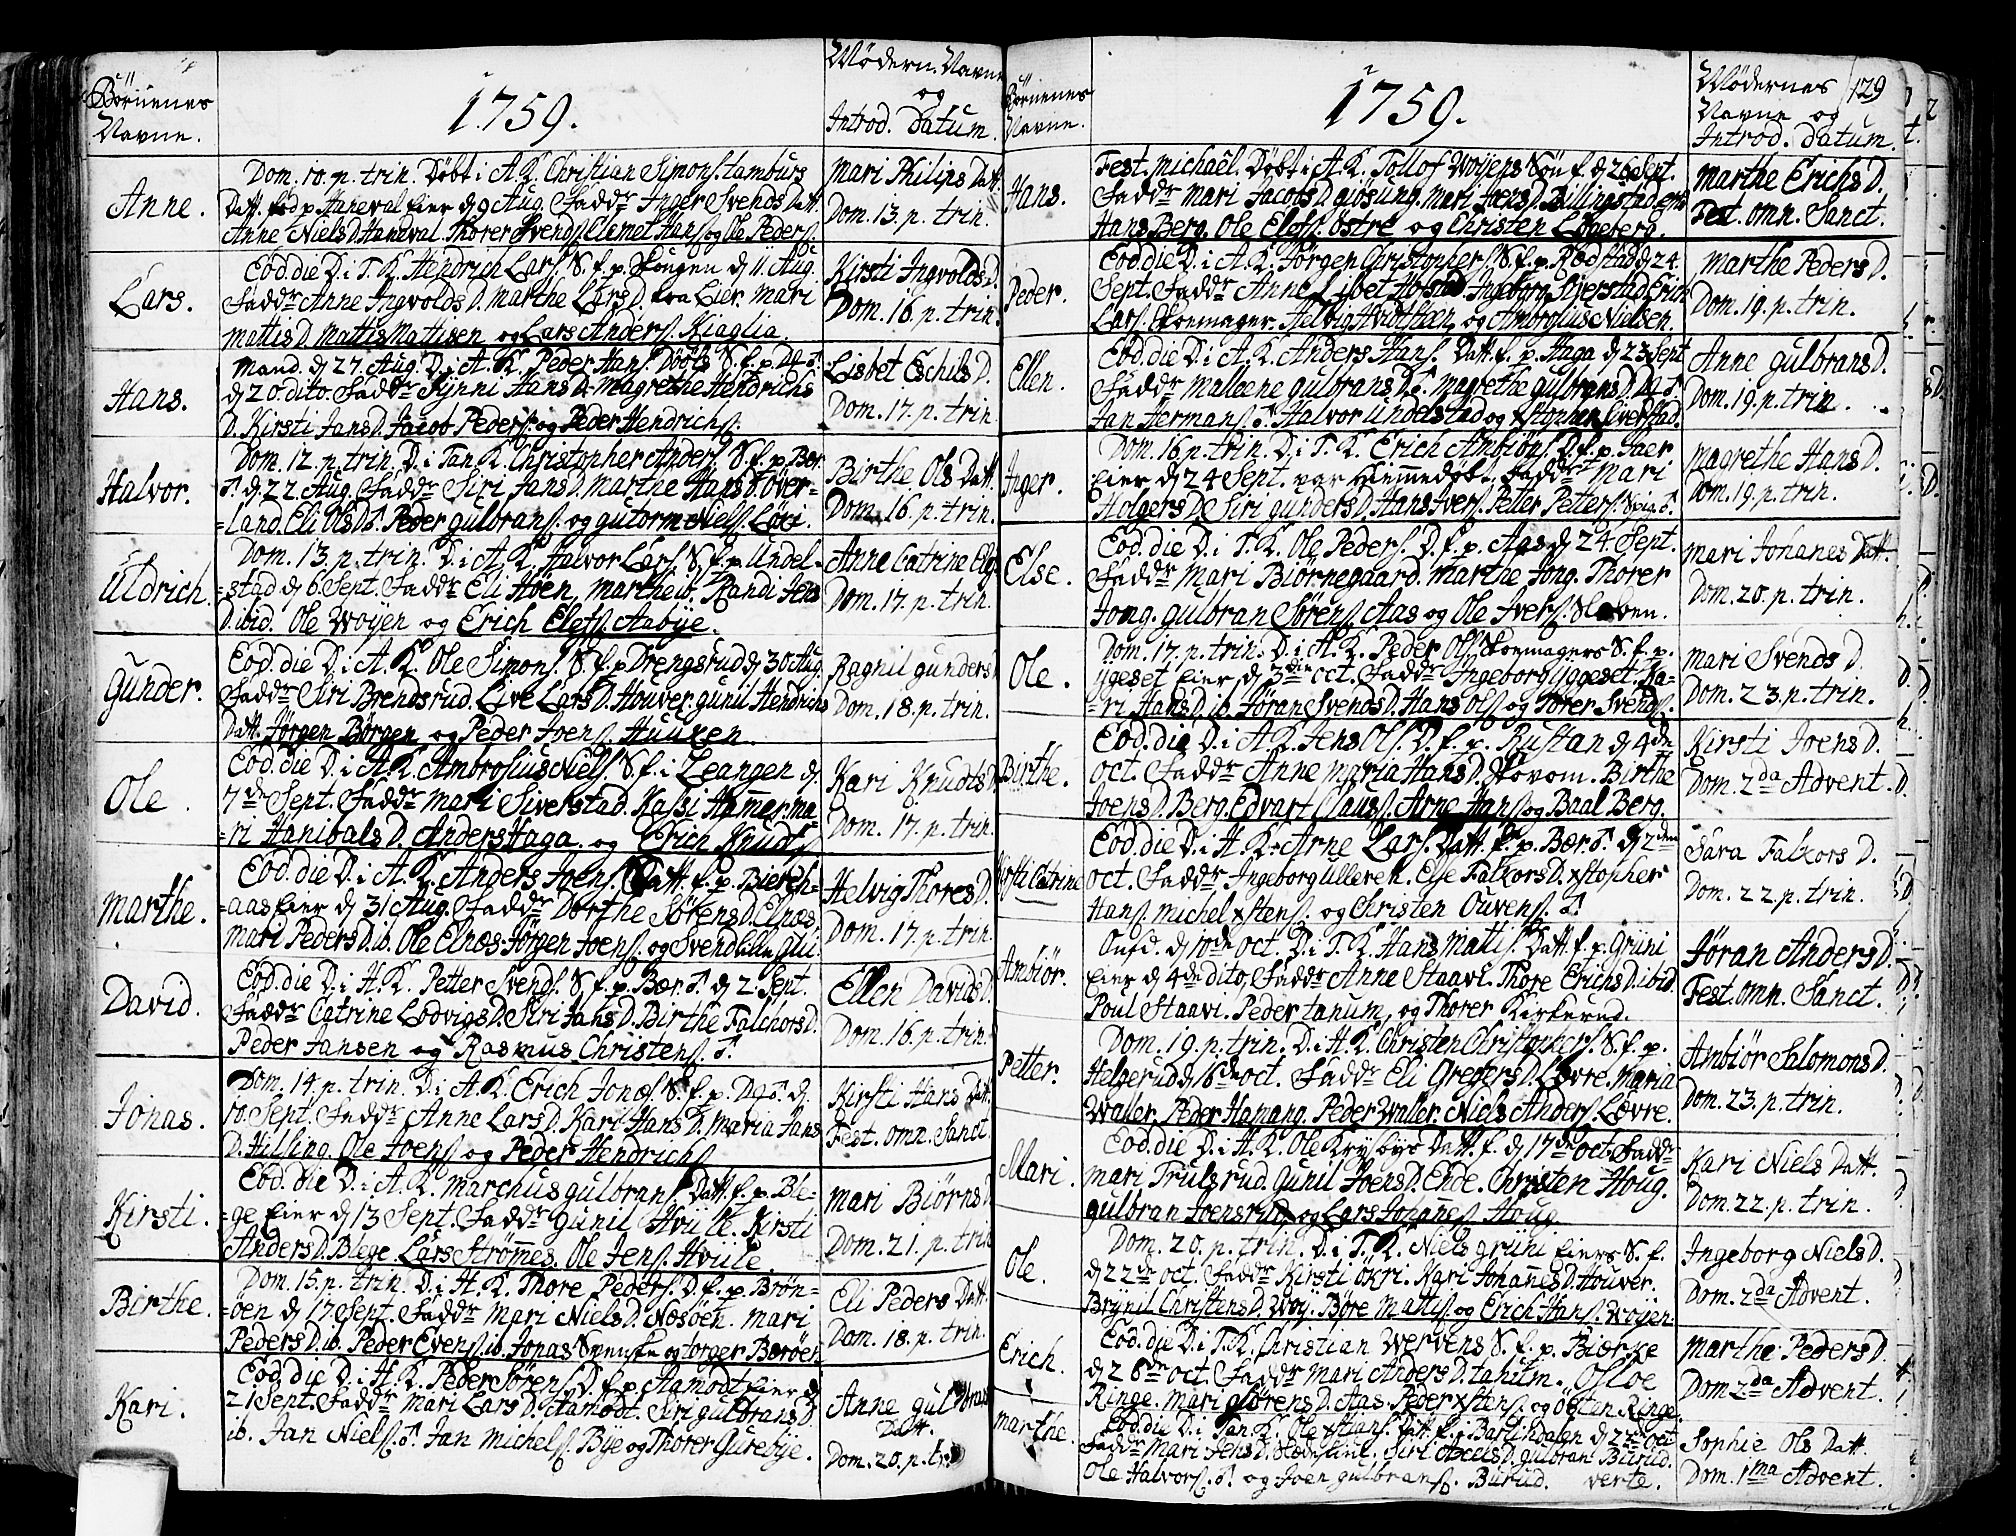 Börnenes
Navne.
1759.
Mödern. Navne
og
Introd. Datum.
Anne.
Dom. 10. p. trin. Döbt i A. K. Christian Simons. tamburs
Datt. fød p. Haneval eier d 9 Aug. Faddr Inger Svends Datt.
Anne Niels D. Haneval. Thorer Svends. Clemet Hans. og Ole Peders.
Mari Philips Datt.
Dom. 13. p. trin.
Lars.
Eod. die D. i T. K. Hendrich Lars. S. f. p. Skougen d 11. Aug.
Faddr Anne Ingvolds D. Marthe Lars D. fra Lier. Mari
Mattis D. Mattis Mattisen og Lars Anders. Kiaglia.
Kirsti Ingvolds D.
Dom. 16. p. trin.
Hans.
Mand. d 27. Aug. D. i A. K. Peder Hans. S. f. p.
d 20. dito. Faddr Synni Hans D. Magrethe Hendrichs
D. Kirsti Jans D. Jacob Peders. og Peder Hendrichs.
Lisbet Eschils D.
Dom. 17. p. trin.
Halvor.
Dom. 12. p. trin. D. i Tan. K. Christopher Anders. S. f. p. Bær.
d 22 Aug. Faddr Siri Jans D. Marthe Hans D. Over-
=land. Eli Ols D. Peder Gulbrans. og Gutorm Niels. Löri.
Birthe Ols Datt.
Dom. 16. p. trin.
Uldrich.
Dom. 13. p. trin. D. i A. K. Halvor Lars. S. f. p. Undel-
=stad d 6 Sept. Faddr Eli Hoen, Marthe ib. Randi Jens
D. ibid. Ole Woyen og Erich Elefs. Aabye.
Anne Catrine
Dom. 17. p. trin.
Gunder.
Eod. die D. i A. K. Ole Simons. S. f. p. Drengsrud d 30 Aug.
Faddr Siri Brendsrud. Live Lars D. Houver. Gunil Hendrichs
Datt. Jörgen Börgen og Peder Joens. Huuken.
Ragnil Gunders D.
Dom. 18. p. trin.
Ole.
Eod. die D. i A. K. Ambrosius Niels. S. f. i Leangen d.
7de Sept. Faddr Mari Siverstad. Kassi Hammer. Ma-
=ri Hanibals D. Anders Haga. og Erich Knuds.
Kari Knudts D.
Dom. 17. p. trin.
Marthe.
Eod. die D. i A. K. Anders Joens. Datt. f. p. Bierch-
=aas eier d 31 Aug. Faddr Dorthe Sörens D. Elnæs
Mari Peders D. ib. Ole Elnæs. Jörgen Joens. og Svend
Helvig Thores D.
Dom. 17. p. trin.
David.
Eod. die D. i A. K. Petter Svends. S. f. p. Bær. d 2. Sept.
Faddr Catrine Lodvigs D. Siri Jans D. Birthe Falchors D.
Peder Jansen og Rasmus Christens.
Ellen Davids D.
Dom. 16. p. trin.
Jonas.
Dom. 14. p. trin. D. i A. K. Erich Jonæs. S. f. p. d.
10. Sept. Faddr Anne Lars D. Kari Hans D. Maria Jans
D. Hilling. Ole Joens. og Peder Hendrichs.
Kirsti Hans Datt.
Fest. omn. Sanct.
Kirsti.
Eod. die D. i A. K. Marchus Gulbrans. Datt. f. p. Ble-
ge eier d 13 Sept. Faddr Gunil Hvile. Kirsti
Anders D. Blege. Lars Strömmes. Ole Jens. Hvile.
Mari Biörns D.
Dom. 21. p. trin
Birthe.
Dom. 15. p. trin. D. i A. K. Thore Peders. D. f. p. Brön-
=öen d 17 Sept. Faddr Mari Niels D. Næsöen. Mari
Peders D. ib. Peder Evens. ib. Jonas Svenske og Torger Bærøer
Eli Peders Datt.
Dom. 18. p. trin.
Kari.
Eod. die D. i A. K. Peder Sörens. D. f. p. Aamodt eier d
21 Sept. Faddr Mari Lars D. Aamodt. Siri Gulbrans D.
ib. Jan Niels. Jan Michels. Bye og Thorer Gurebye.
Anne Gulbrans
Datt.
Dom. 20. p. trin
Börnenes
Navne.
1759.
Mödernes
Navne og
Introd. Datum.
129
Hans.
Fest. Michaël. Döbt i A. K. Tollof Woyens Sön f. d 26 Sept.
Faddr Mari Jacobs D. Giösung. Mari Joens D. Billingstad.
Hans Berg. Ole Elefs. Östre og Christen Lögeberg.
Marthe Erichs D.
Fest. omn. Sanct.
Peder.
Eod. die D. i A. K. Jörgen Christophers. S. f. p. Rodstad d 24
Sept. Faddr Anne Libet Hofstad. Ingeborg Siverstad. Erich
Lars. Skoemager. Helvig Hvidsteen og Ambrosius Nielsen.
Marthe Peders D.
Dom. 19. p. trin.
Ellen.
Eod. die D. i A. K. Anders Hans. Datt. f. p. Haga d 23 Sept
Faddr Malleene Gulbrans D. Magrethe Gulbrans D.
Jan Hermans. Halvor Undelstad og Xstopher Overstad.
Anne Gulbrans D.
Dom. 19. p. trin.
Inger.
Dom. 16. p. trin. D. i T. K. Erich Ambiörs. D. f. p. Jaer
eier d 24 Sept. var Hiemmedöbt. Faddr Mari
Holgers D. Siri Gunders D. Hans Ivers. Petter Petters. Spig.
Magrethe Hans D.
Dom. 19. p. trin.
Else.
Eod. die D. i T. K. Ole Peders. D. f. p. Aas d 24. Sept.
Faddr Mari Biörnegaard. Marthe Jong. Thorer
Jong. Gulbran Sörens. Aas og Ole Ivers. Slæben.
Mari Johanes Datt.
Dom. 20. p. trin.
Ole.
Dom. 17. p. trin. D. i A. K. Peder Ols. Skoemagers S. f. p.
Yggeset eier d 3die oct. Faddr Ingeborg Yggeset. Ka-
=ri Hans D. ib. Jöran Svends D. Hans Ols. og Torer Svends.
Mari Svends D.
Dom. 23. p. trin.
Birthe.
Eod. die D. i A. K. Jens Ols. D. f. p. Rustan d 4de
oct. Faddr Anne Maria Hans D. Skovom. Birthe
Joens D. Berg. Edvart Claus. Arne Hans. og Baal Berg.
Kirsti Joens D.
Dom. 2da Advent.
Kirsti Catrine
Eod. die D. i A. K. Arne Lars. Datt. f. p. Bær. d 2den
oct. Faddr Ingeborg Ulleren. Else Falkors D. Xstopher
Hans. Michel Xstens. og Christen Ouvens.
Sara Falkors D.
Dom. 22. p. trin.
Ambiör.
Onsd. d 10de oct. D. i T. K. Hans Mattis. Datt. f. p. Grini
eier d 4de dito. Faddr Anne Staavi. Thore Erichs D. ibid.
Poul Staavi. Peder Tanum, og Thorer Kirkerud.
Jöran Anders D.
Fest. omn. Sanct.
Petter.
Dom. 19. p. trin. D. i A. K. Christen Christophers. S. f. p.
Helgerud d 16de oct. Faddr Eli Gregers D. Lövre. Maria
Waller. Peder Hamang. Peder Waller. Niels Anders. Lövre.
Ambiör Salomons D.
Dom. 23. p. trin.
Mari.
Eod. die D. i A. K. Ole Krysbys Datt. f. d 17de oct. Faddr
Mari Trulsrud. Gunil Joens D. Ende. Christen Houg.
Gulbran Joensrud og Lars Johannes. Houg.
Kari Niels Datt.
Dom. 22. p. trin.
Ole.
Dom. 20. p. trin. D. i T. K. Niels Grini eiers S. f.
d 22de oct. Faddr Kirsti Ökri. Kari Johannes D. Houver.
Brynil Christens D. Woy. Böre Mattis. og Erich Hans. Woyen.
Ingeborg Niels D.
Dom. 2da Advent.
Erich.
Eod. die D. i T. K. Christian Wervens S. f. p. Biærke
d 26de oct. Faddr Mari Anders D. Osloe
Ringe. Mari Sörens D. Aas. Peder Xstens. og Östen Ringe.
Marthe Peders D.
Dom 2da Advent.
Marthe.
Eod. die D. i Tan. K. Ole Xstians. Datt. f. i Bærumdalen d 22 oct.
Faddr Mari Jens D. Siri Axels D. Gulbran Burud.
Ole Halvors. og Joen Gulbrans. Burud. verte.
Sophie Ols Datt.
Dom. 1ma Advent.